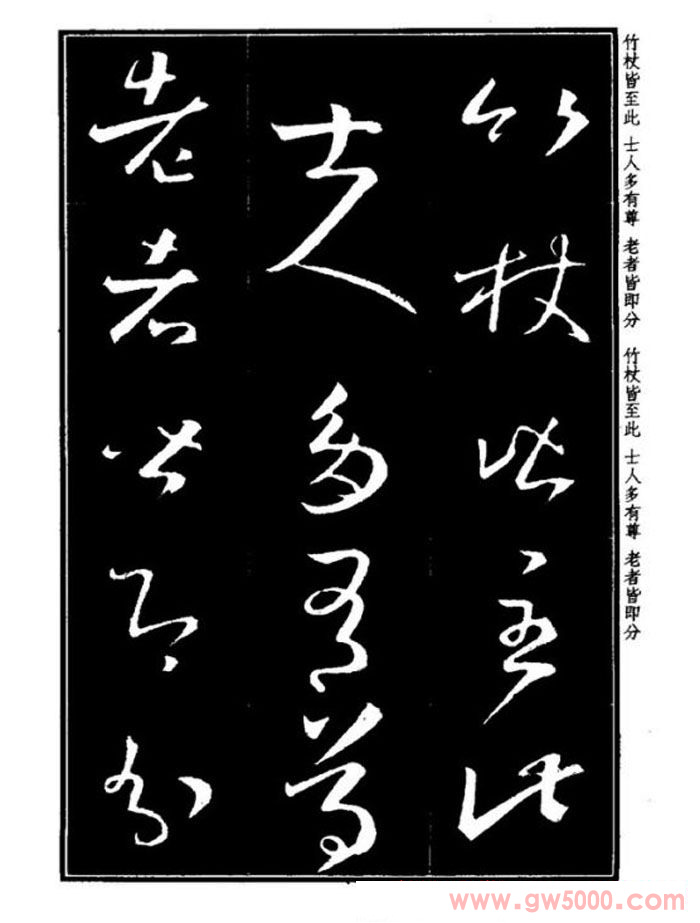 竹杖皆至此
士人多有尊
老者皆即分
竹杖皆至此 士人多有尊 老者皆即分 竹杖皆至此 士人多有尊 老者皆即分
www.gw5000.com